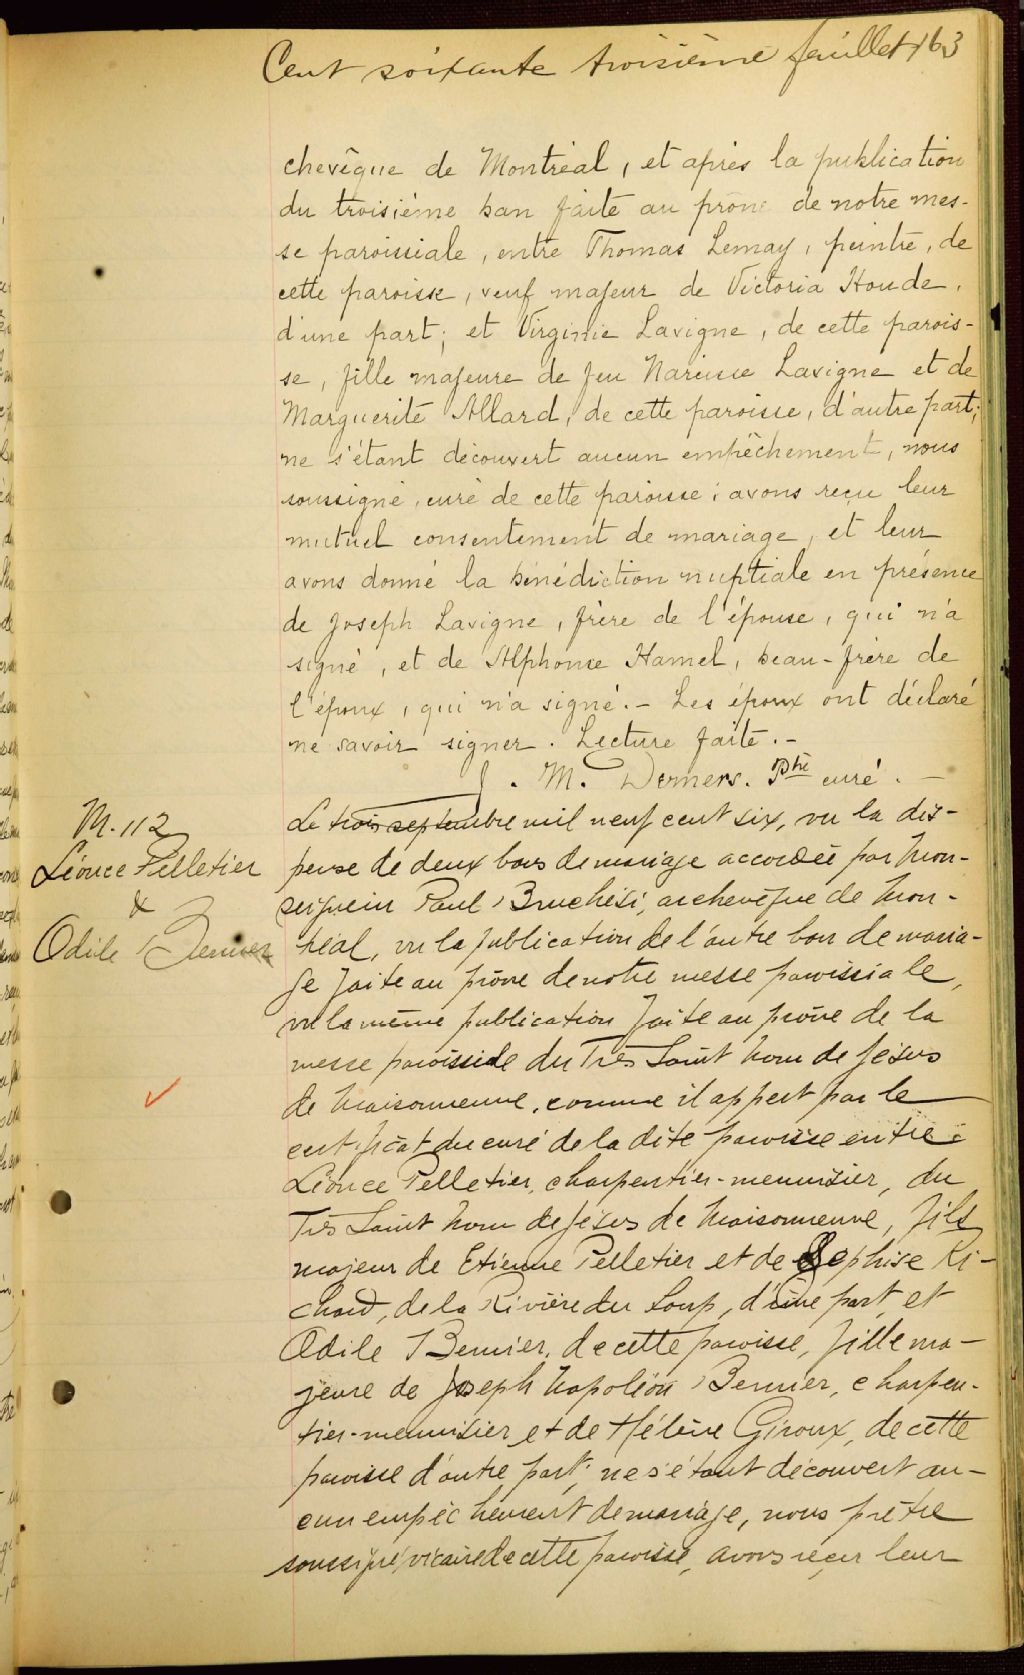 Cent soixante troisième feuillet 163
chevêque de Montréal, et après la publication
du troisième ban faite au prône de notre mes-
se paroissiale, entre Thomas Lemay, peintre, de
cette paroisse, veuf majeur de Victoria Houde,
d'une part; et Virginie Lavigne, de cette parois-
se, fille majeure de feu Narcisse Lavigne et de
Marguerite Allard, de cette paroisse, d'autre part;
ne s'étant découvert aucun empêchement, nous
soussigné, curé de cette paroisse, avons reçu leur
mutuel consentement de mariage, et leur
avons donné la bénédiction nuptiale en présence
de Joseph Lavigne, frère de l'épouse, qui n'a
signé, et de Alphonse Hamel, beau-frère de
l'époux, qui n'a signé.- Les époux ont déclaré
ne savoir signer. Lecture faite.-
J. M. Demers. Ptre curé.-
M.112
Léonce Pelletier
&
Odile Bernier
Le trois septembre mil neuf cent six, vu la dis-
pense de deux bans de mariage accordée par Mon-
seigneur Paul Bruchési, archevêque de Mon-
tréal, vu la publication de l'autre ban de maria-
ge faite au prône de notre messe paroissiale,
vu la même publication faite au prône de la
messe paroissiale du Très Saint Nom de Jésus
de Maisonneuve, comme il appert par le
certificat du curé de la dite paroisse entre
Léonce Pelletier, charpentier-menuisier, du
Très Saint Nom de Jésus de Maisonneuve, fils
majeur de Etienne Pelletier et de Sophise Ri-
chard, de la Rivière du Loup, d'une part, et
Odile Bernier, de cette paroisse, fille ma-
jeure de Joseph Napoléon Bernier, charpen-
tier-menuisier et de Hélène Giroux, de cette
paroisse d'autre part; ne s'étant découvert au-
cun empêchement de mariage, nous prêtre
soussigné, vicaire de cette paroisse, avons reçu leur